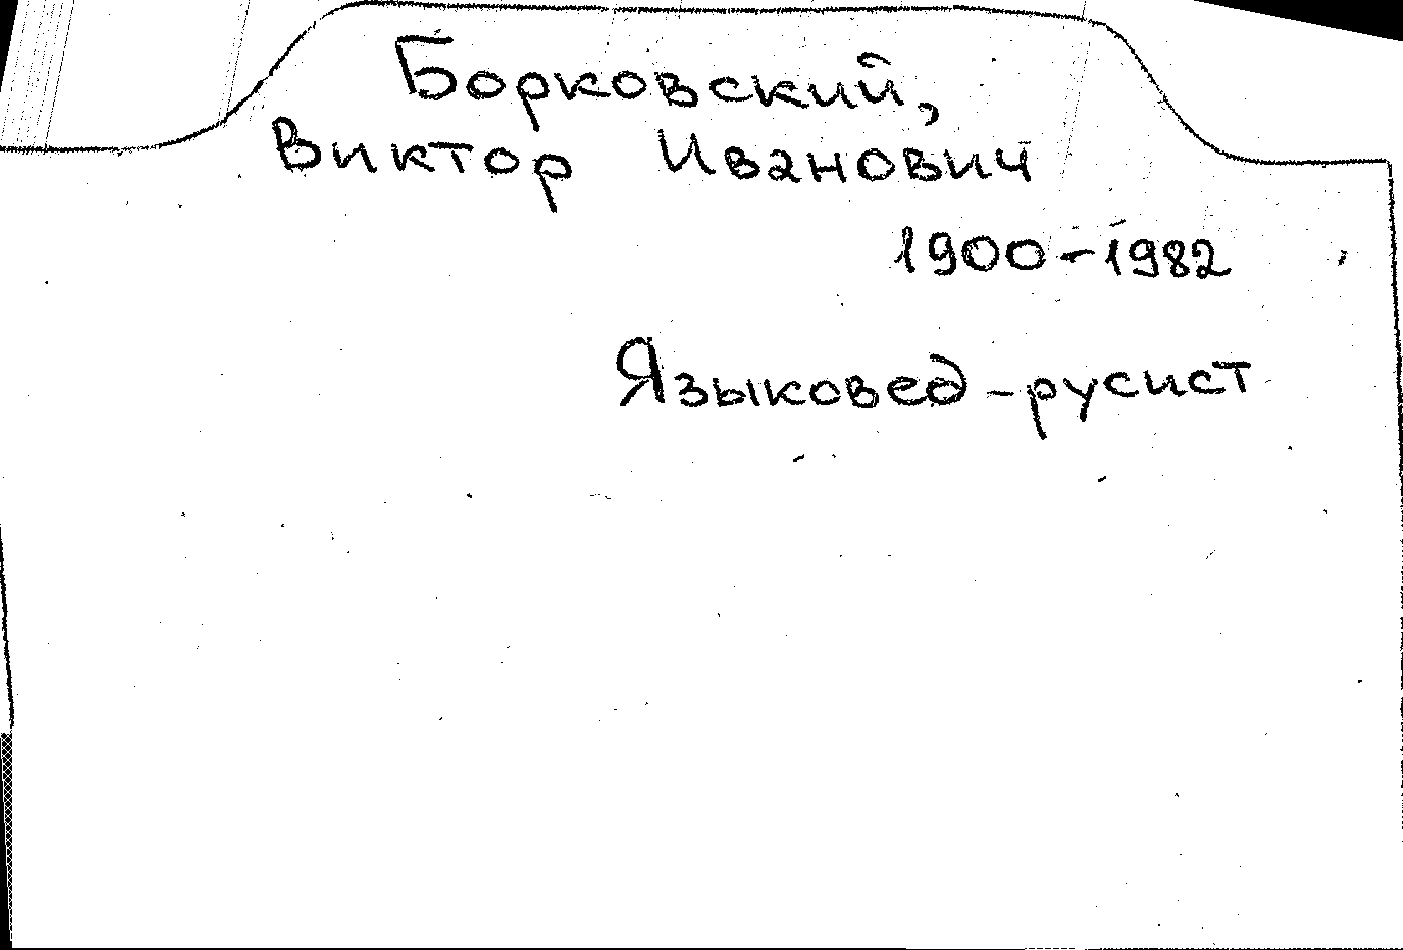 Борковский,
Виктор Иванович
1900-1982
Языковед-русист